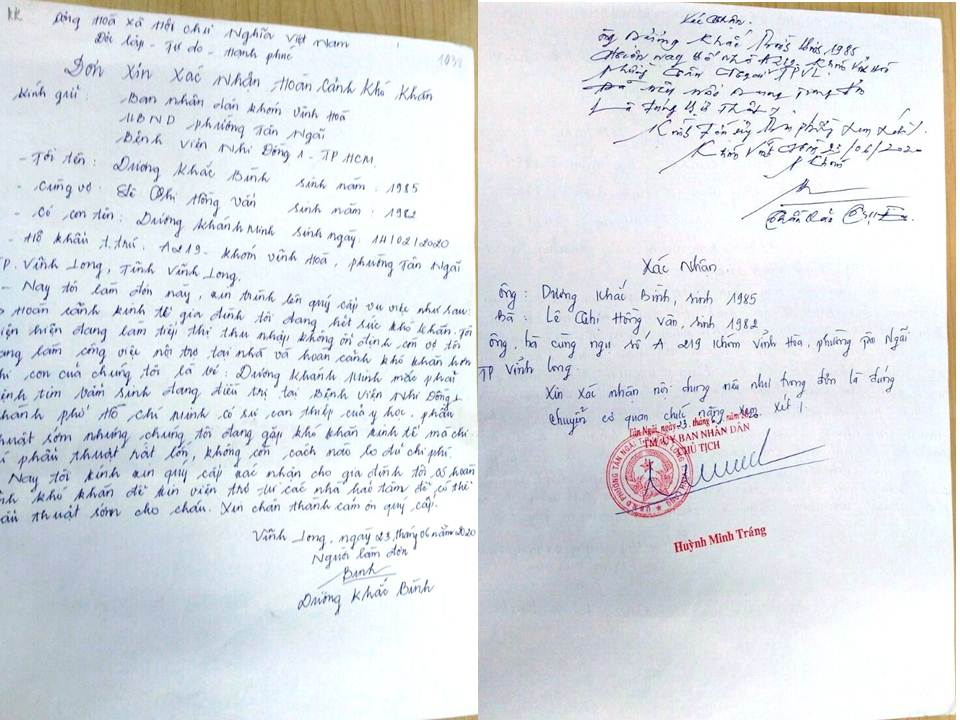 KK
Cộng Hoà Xã Hội Chủ Nghĩa Việt Nam
Độc lập - Tự do - Hạnh phúc
Đơn Xin Xác Nhận Hoàn Cảnh Khó Khăn
Kính gửi : Ban nhân dân khóm Vĩnh Hoà
UBND phường Tân Ngãi
Bệnh Viện Nhi Đồng 1 - TP HCM.
- Tôi tên : Dương Khắc Bình sinh năm : 1985
- cùng vợ : Lê Thị Hồng Vân sinh năm : 1982
- Có con tên : Dương Khánh Minh sinh ngày : 14/02/2020
- Hộ khẩu t.trú : A219 - Khóm Vĩnh Hoà, phường Tân Ngãi
TP. Vĩnh Long, Tỉnh Vĩnh Long.
- Nay tôi làm đơn này, xin trình lên quý cấp vụ việc như sau:
Hoàn cảnh kinh tế gia đình tôi đang hết sức khó khăn. Tôi
hiện đang làm tiếp thị thu nhập không ổn định còn vợ tôi
đang làm công việc nội trợ tại nhà và hoàn cảnh khó khăn hơn
khi con của chúng tôi là bé : Dương Khánh Minh mắc phải
bệnh tim bẩm sinh đang điều trị tại Bệnh Viện Nhi Đồng 1
thành phố Hồ Chí Minh có sự can thiệp của y học, phẫu
thuật sớm nhưng chúng tôi đang gặp khó khăn kinh tế mà chi
phí phẫu thuật rất lớn, không còn cách nào lo đủ chi phí.
Nay tôi kính xin quý cấp xác nhận cho gia đình tôi có hoàn
cảnh khó khăn để xin viện trợ từ các nhà hảo tâm để có thể
phẫu thuật sớm cho cháu. Xin chân thành cảm ơn quý cấp.
Vĩnh Long, ngày 23 tháng 06 năm 2020
Người làm đơn
Bình
Dương Khắc Bình
Xác Nhận.
ông Dương Khắc Bình sinh 1985
Hiện nay số nhà A219 Khóm Vĩnh Hoà
phường Tân Ngãi TPVL.
nội dung trong đơn
Là đúng sự thật
23/06/2020
Xác Nhận.
ông : Dương Khắc Bình, sinh 1985
Bà : Lê Thị Hồng Vân, sinh 1982
ông, bà cùng ngụ số A 219 Khóm Vĩnh Hòa, phường Tân Ngãi
TP Vĩnh Long
Xin xác nhận nội dung nêu như trong đơn là đúng
chuyển cơ quan chức năng xem xét !
Tân Ngãi, ngày 23 tháng 6 năm 2020
TM. ỦY BAN NHÂN DÂN
CHỦ TỊCH
Huỳnh Minh Tráng